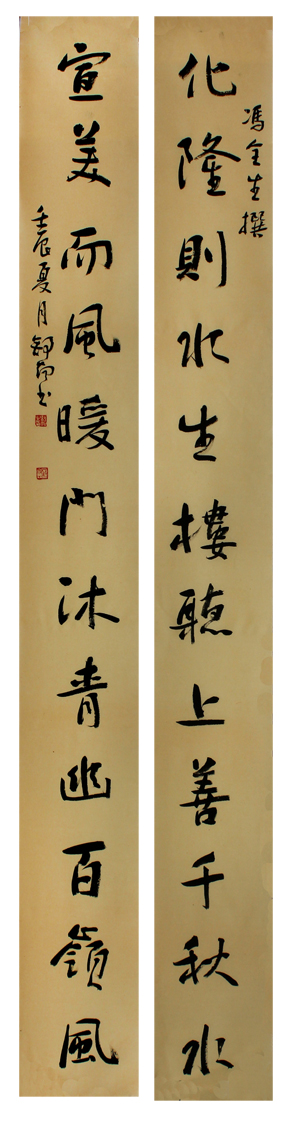 化隆則水生樓聽上善千秋水
馮全生撰
宣美而風暖門沐青幽百嶺風
壬辰夏月書